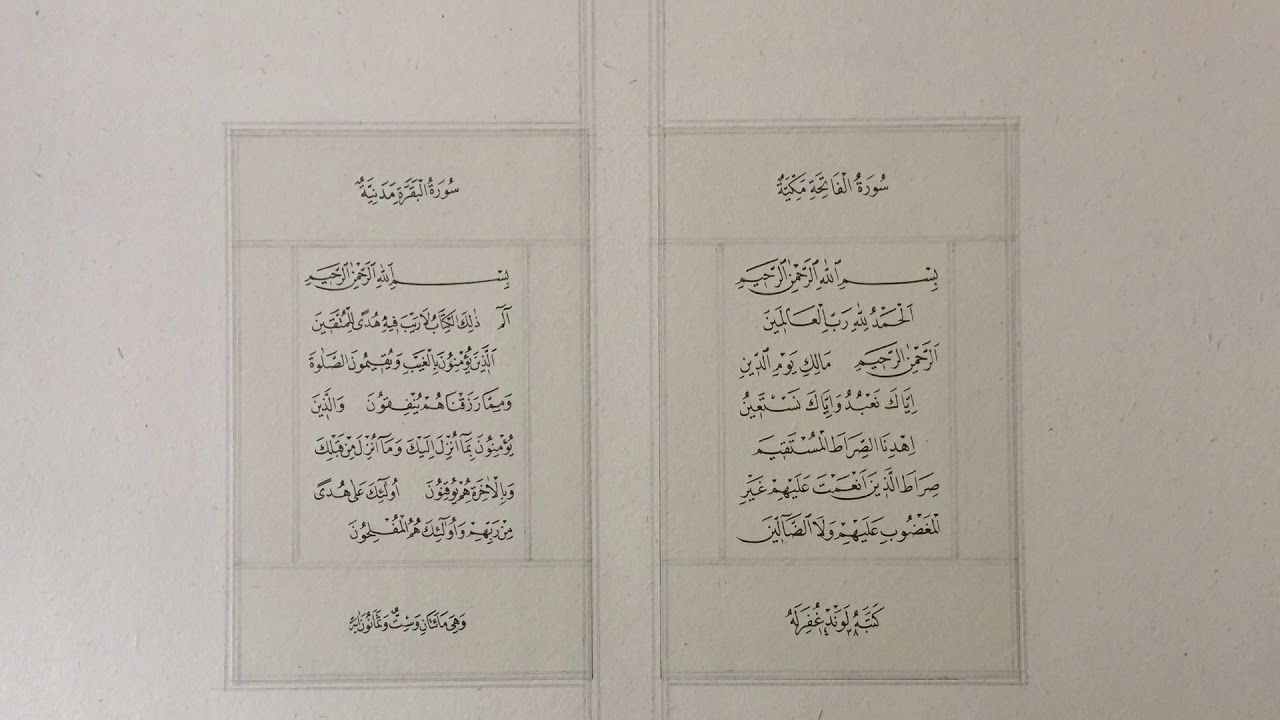 سُورَةُ الْفَاتِحَةِ مَكِّيَّةٌ
بِسْمِ اللهِ الرَّحْمٰنِ الرَّحِيمِ
اَلْحَمْدُ لِلّٰهِ رَبِّ الْعَالَمِينَ
اَلرَّحْمٰنِ الرَّحِيمِ مَالِكِ يَوْمِ الدِّينِ
اِيَّاكَ نَعْبُدُ وَاِيَّاكَ نَسْتَعِينُ
اِهْدِنَا الصِّرَاطَ الْمُسْتَقِيمَ
صِرَاطَ الَّذِينَ اَنْعَمْتَ عَلَيْهِمْ غَيْرِ
الْمَغْضُوبِ عَلَيْهِمْ وَلَا الضَّٓالِّينَ
كَتَبَهُ لَوَنْد غُفِرَ لَهُ
١٤٣٨
سُورَةُ الْبَقَرَةِ مَدَنِيَّةٌ
بِسْمِ اللهِ الرَّحْمٰنِ الرَّحِيمِ
الٓمٓ ذٰلِكَ الْكِتَابُ لَا رَيْبَ فِيهِ هُدًى لِلْمُتَّقِينَ
اَلَّذِينَ يُؤْمِنُونَ بِالْغَيْبِ وَيُقِيمُونَ الصَّلٰوةَ
وَمِمَّا رَزَقْنَاهُمْ يُنْفِقُونَ وَالَّذِينَ
يُؤْمِنُونَ بِمَٓا اُنْزِلَ اِلَيْكَ وَمَٓا اُنْزِلَ مِنْ قَبْلِكَ
وَبِالْاٰخِرَةِ هُمْ يُوقِنُونَ اُولٰٓئِكَ عَلٰى هُدًى
مِنْ رَبِّهِمْ وَاُولٰٓئِكَ هُمُ الْمُفْلِحُونَ
وَهِيَ مِائَتَانِ وَسِتٌّ وَثَمَانُونَ اٰيَةً